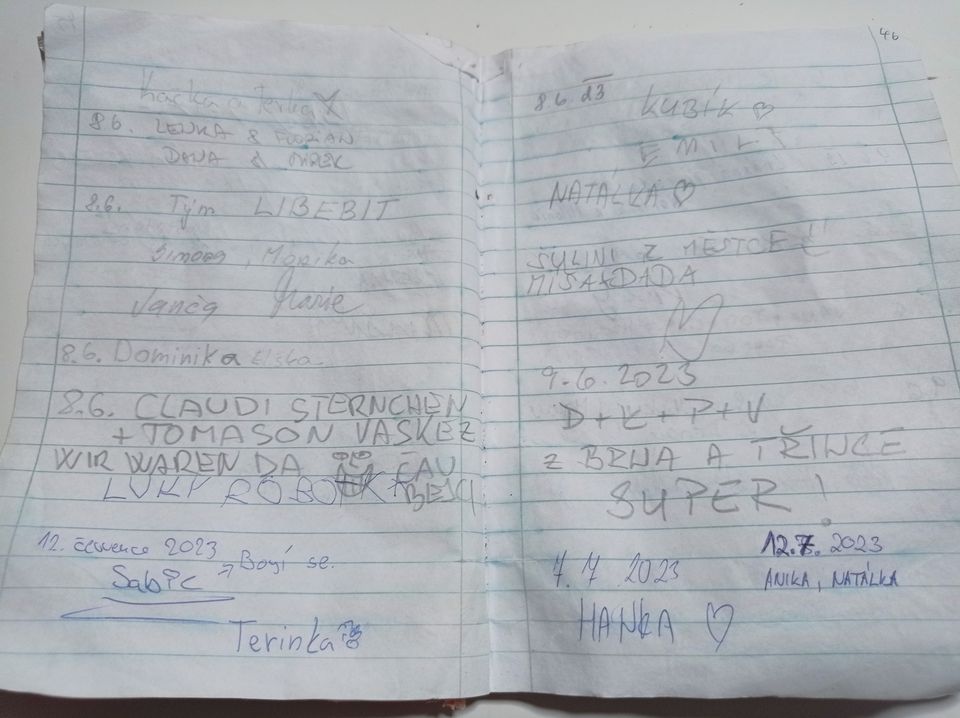 Kačka a Terka
8.6. LENKA & FLORIAN
DANA & MIREK
8.6. Tým LIBEBIT
Simona, Monika
Vanča Marie
8.6. Dominika
8.6. CLAUDI STERNCHEN
+ TOMASON VASKEZ
WIR WAREN DA ČAU
LUKY ROBO BESI
12. července 2023
Sabič → Bojí se.
Terinka
46
8.6. 23 KUBÍK ♡
EMIL!
NATÁLKA ♡
ŠULINI Z MĚSTCE!!
MÍSA+DADA
9.6.2023
D+K+P+V
Z BRNA A TŘINCE
SUPER!
7.7 2023
HANKA ♡
12.7. 2023
ANIKA, NATÁLKA